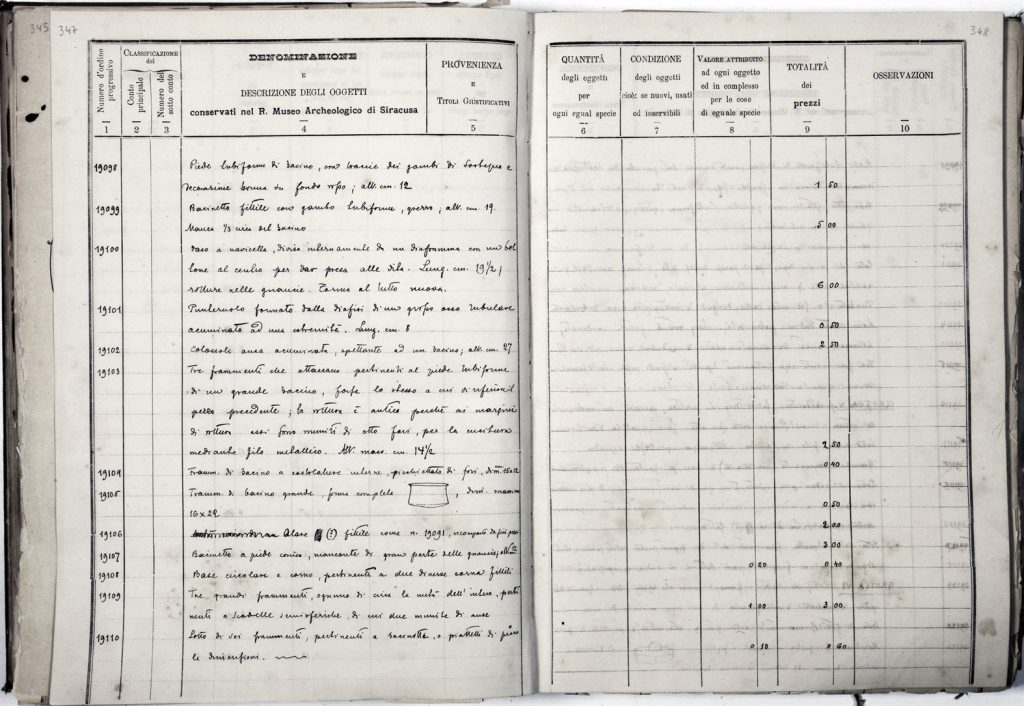 345 347
348
Numero d'ordine progressivo
CLASSIFICAZIONE del
Conto principale
Numero del sotto conto
DENOMINAZIONE
E
DESCRIZIONE DEGLI OGGETTI
conservati nel R. Museo Archeologico di Siracusa
PROVENIENZA
E
TITOLI GIUSTIFICATIVI
1 2 3 4 5
QUANTITÀ
degli oggetti
per
ogni egual specie
CONDIZIONE
degli oggetti
cioè: se nuovi, usati
od inservibili
VALORE ATTRIBUITO
ad ogni oggetto
ed in complesso
per le cose
di eguale specie
TOTALITÀ
dei
prezzi
OSSERVAZIONI
6 7 8 9 10
19098 Piede tubiforme di bacino, con tracce dei gambi di sostegno e
decorazione bruna su fondo rosso; alt. cm. 12 1 50
19099 Bacinetto fittile con gambo tubiforme, grezzo; alt. cm. 19.
Manca 1/3 circa del bacino 5 00
19100 Vaso a navicella, diviso internamente da un diaframma con un bot
tone al centro per dar presa alle dita. Lung. cm. 19 1/2;
rotture nelle guancie. Forma al tutto nuova. 6 00
19101 Punteruolo formato dalla diafisi di un grosso osso tubulare
acuminato ad una estremità. Lung. cm. 8 0 50
19102 Colossale ansa acuminata, spettante ad un bacino; alt. cm. 27 2 50
19103 Tre frammenti che attaccano pertinenti al piede tubiforme
di un grande bacino, forse lo stesso a cui si riferisce il
pezzo precedente; la rottura è antica perchè ai margini
di rottura essi sono muniti di otto fori, per la cucitura
mediante filo metallico. Alt. mass. cm. 14 1/2 2 50
19104 Framm. di bacino a costolature interne, picchiettato di fori, dim. 15x12 0 40
19105 Framm. di bacino grande, forma completa , dim. massima
16x22 0 50
19106 Alare (?) fittile come n. 19091, ricomposto da 2 00
19107 Bacinetto a piede conico, mancante di gran parte delle guancie; alt. 12 3 00
19108 Base circolare e corno, pertinenti a due diverse corna fittili 0 20 0 40
19109 Tre grandi frammenti, ognuno di circa la metà dell'intero, perti
nenti a scodelle semisferiche, di cui due munite di anse 1 00 3 00
19110 Lotto di sei frammenti, pertinenti a bacinetti, o piattelli di picco
le dimensioni. 0 10 0 60